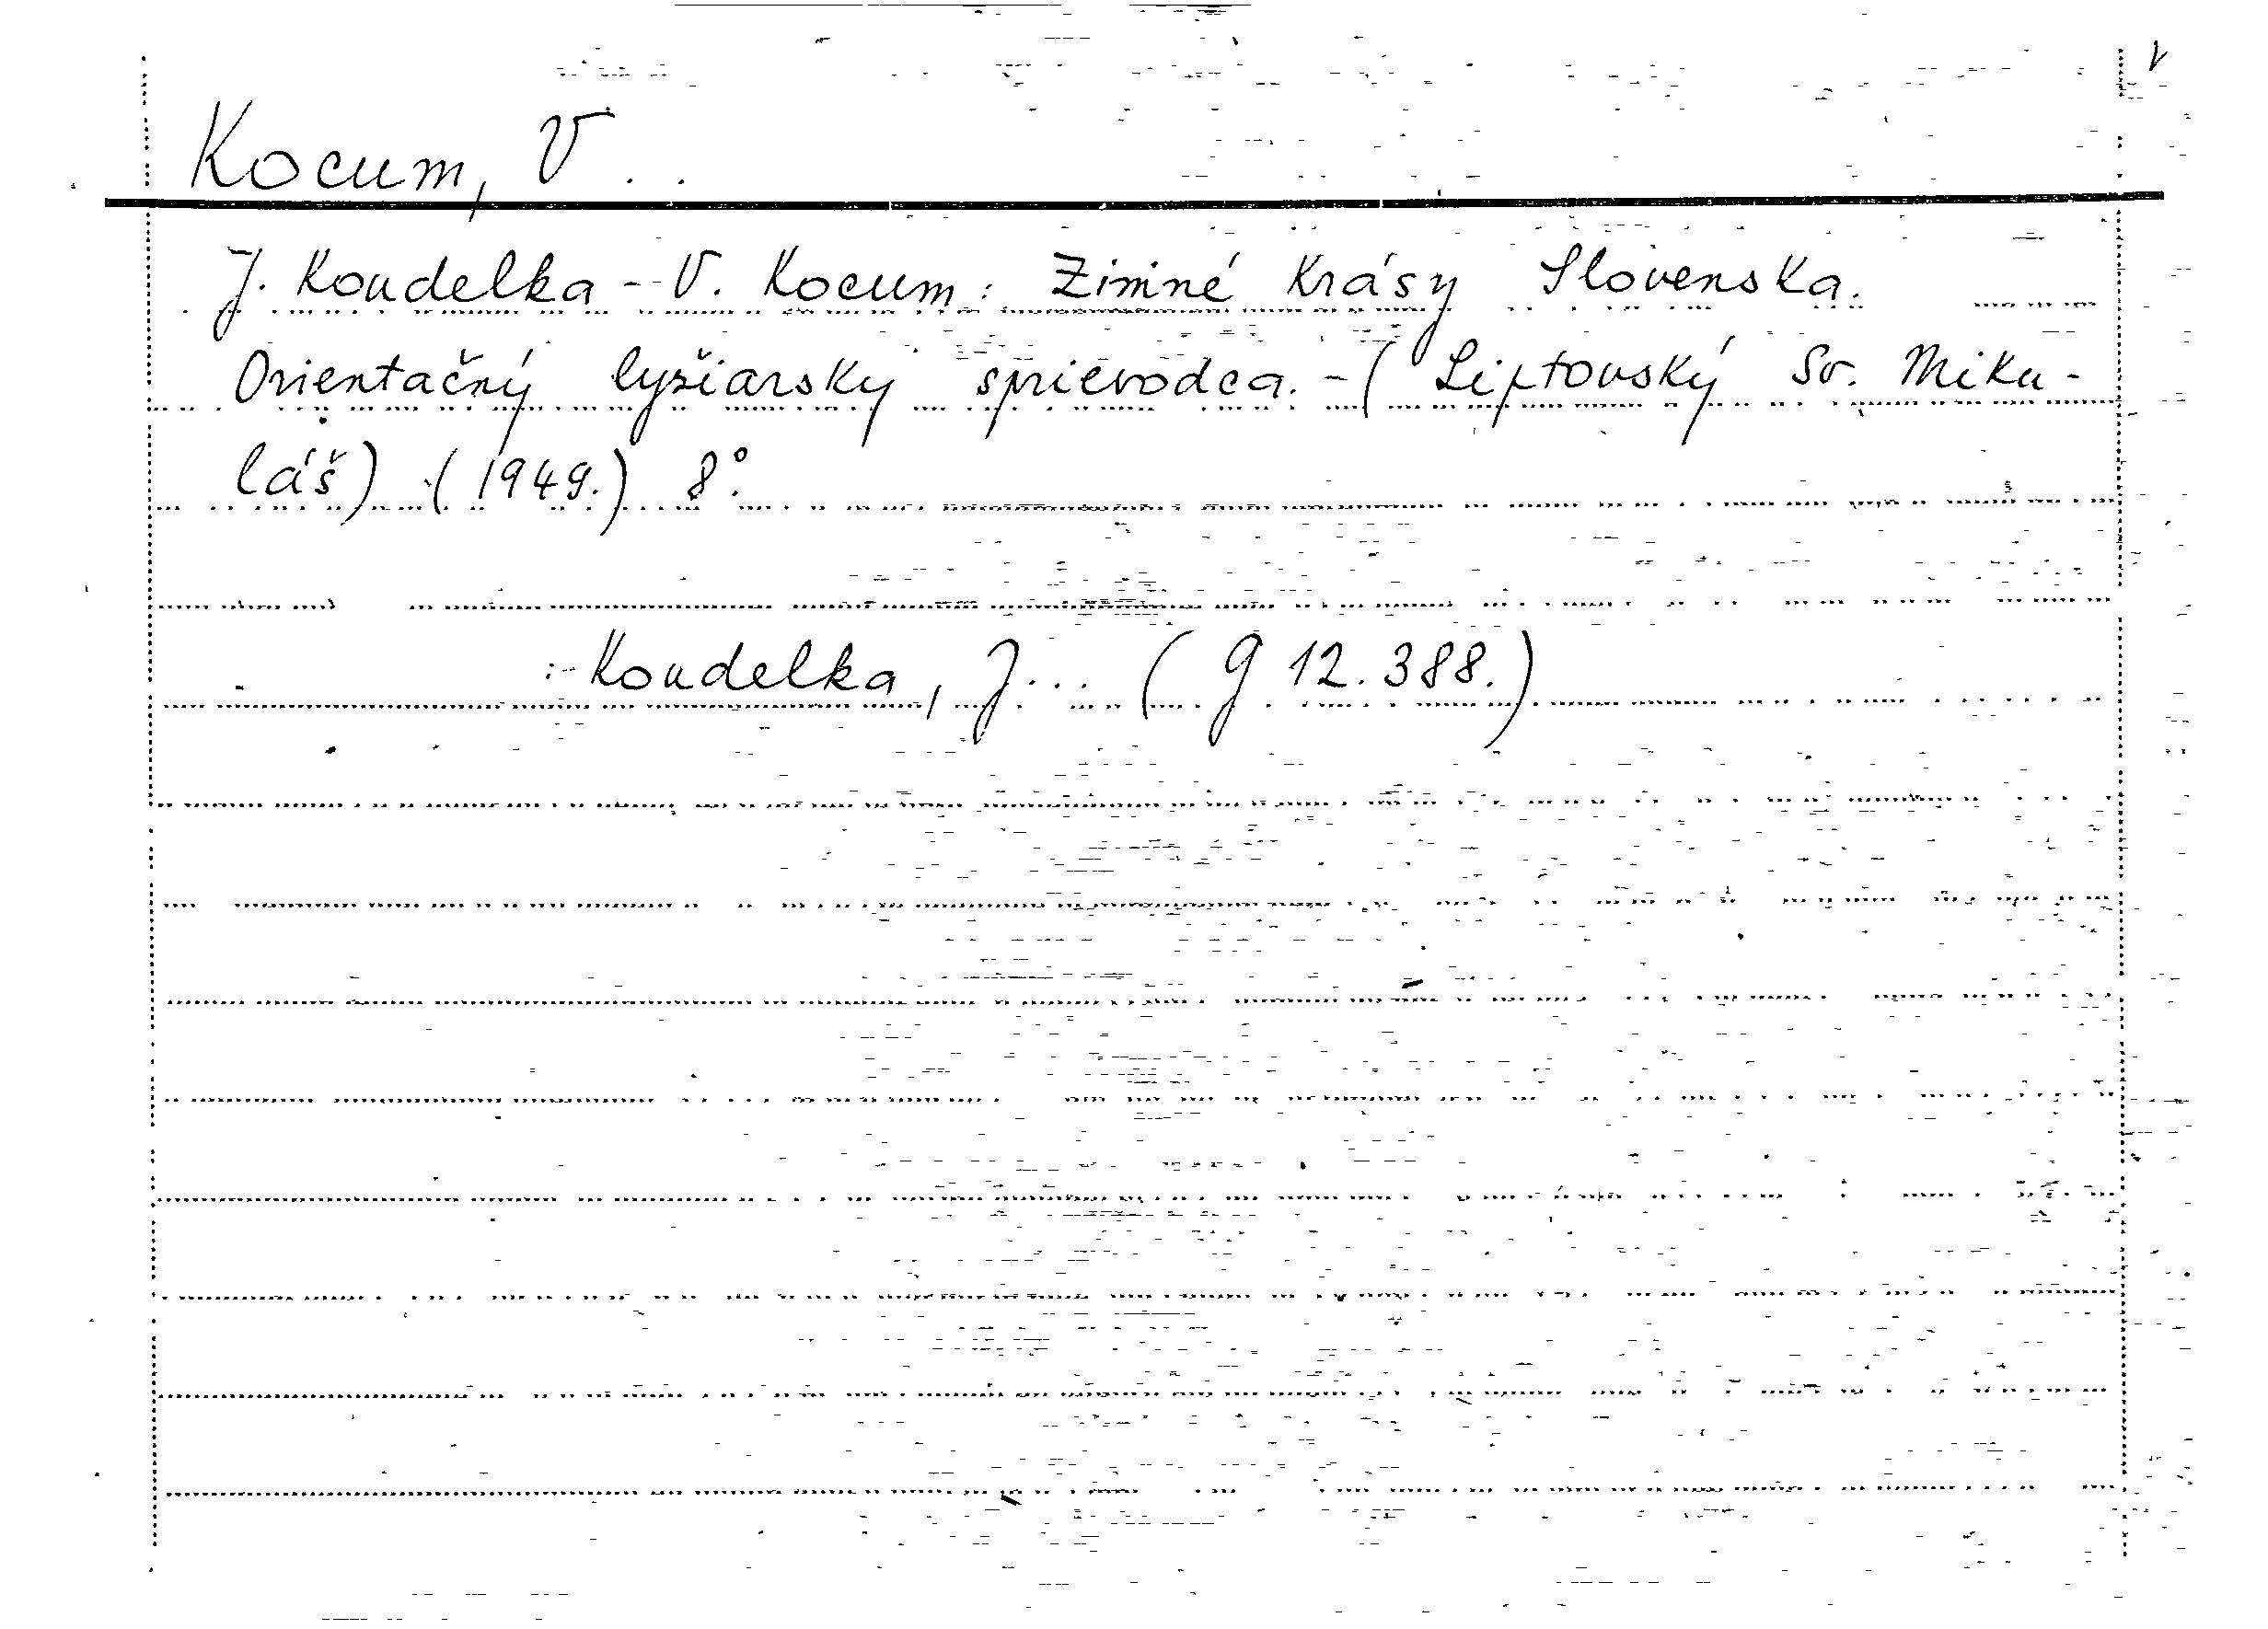 Kocum, V . .
J. Koudelka - V. Kocum: Zimné Krásy Slovenska.
Orientačný lyžiarsky sprievodca. - (Liptovský Sv. Miku-
láš) (1949.) 8°.
:- Koudelka, J... (G 12.388.)